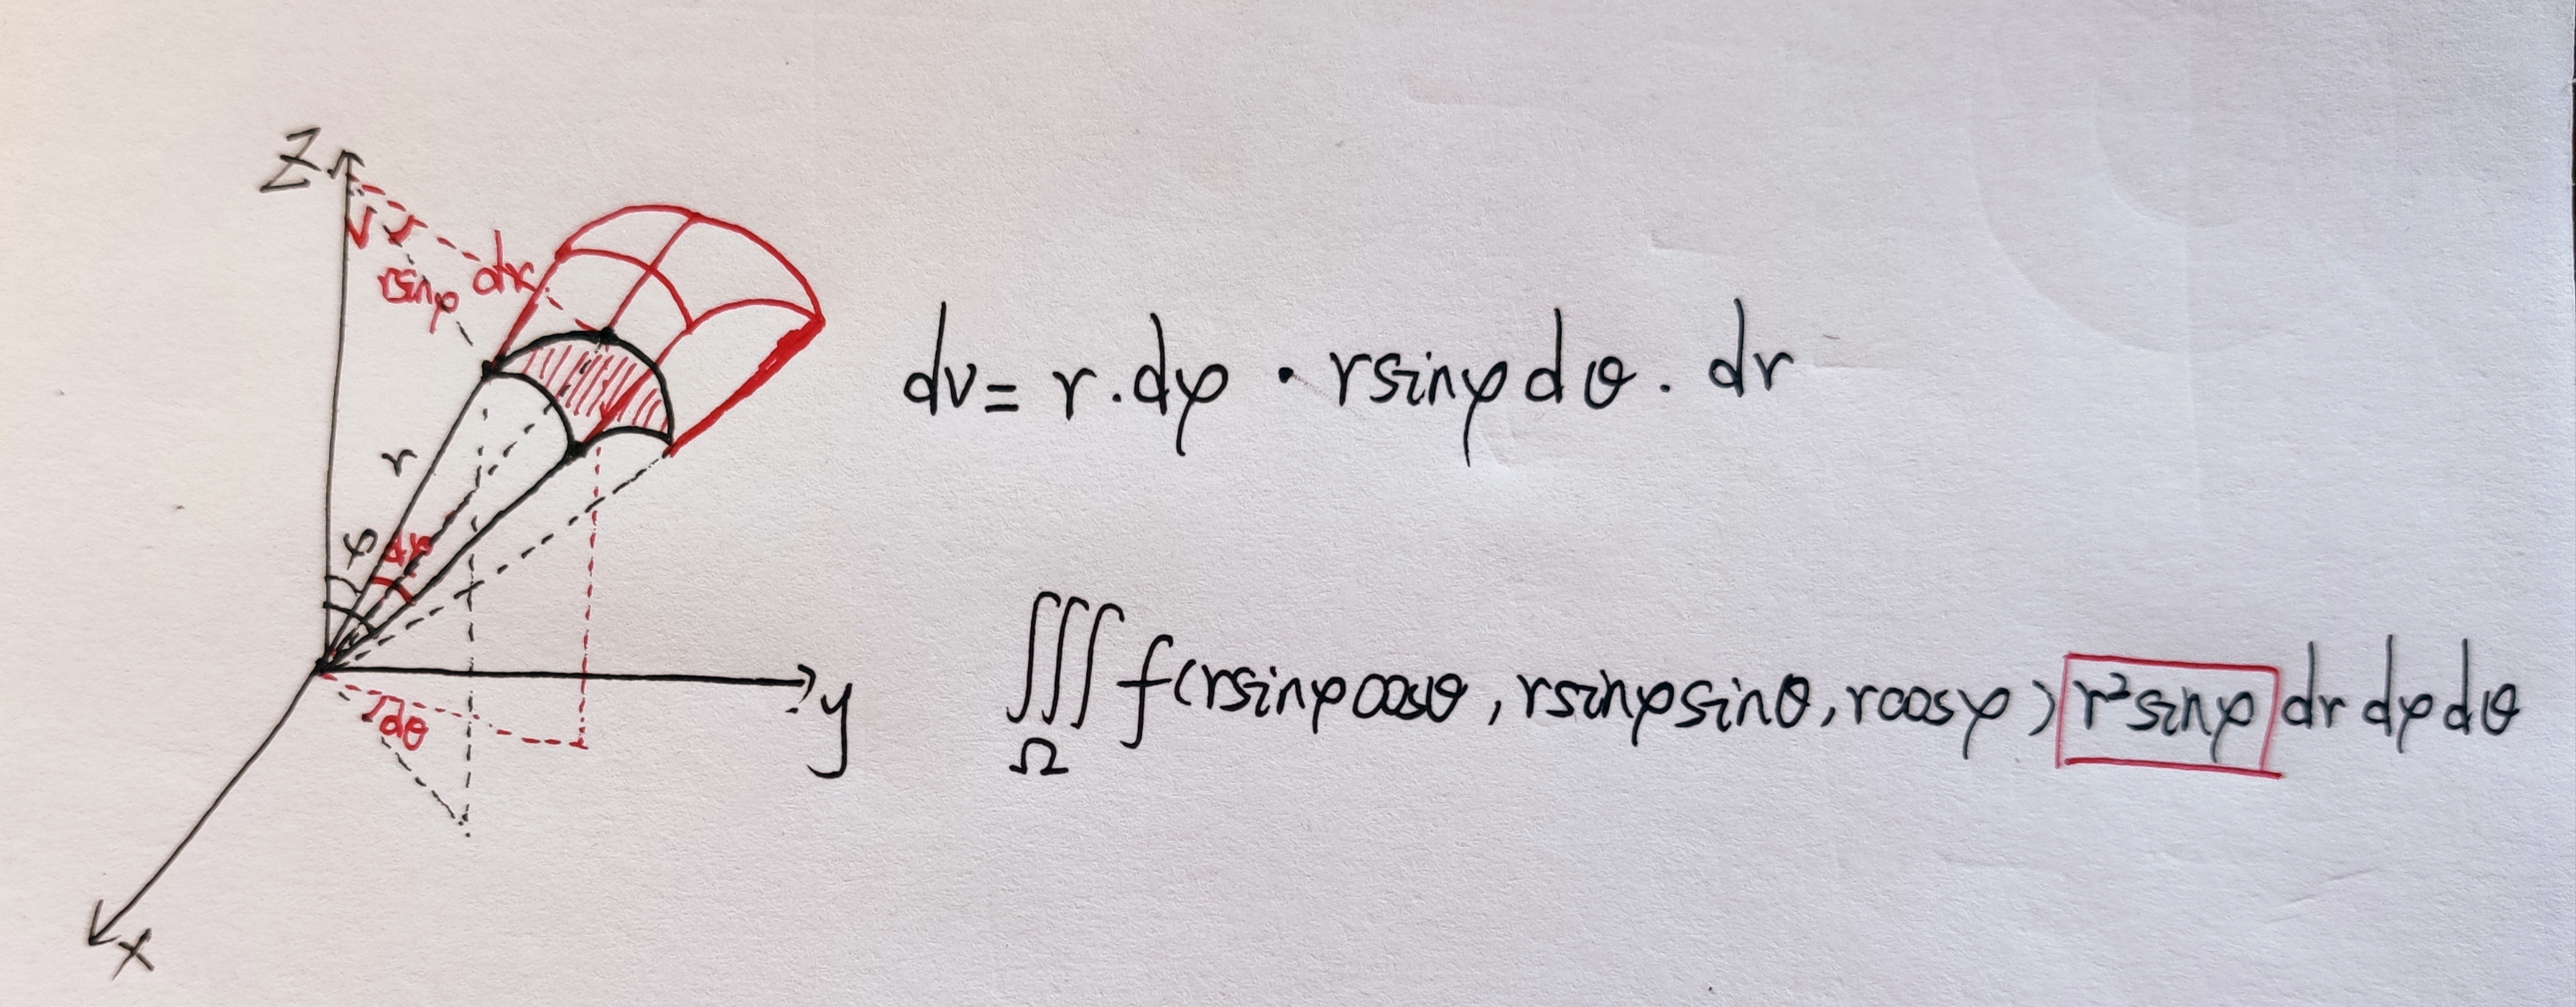 Z
rsinφ
dr
r
φ
dφ
y
dθ
x
dv = r·dφ · rsinφdθ · dr
∭Ω f(rsinφcosθ, rsinφsinθ, rcosφ) r²sinφ dr dφ dθ